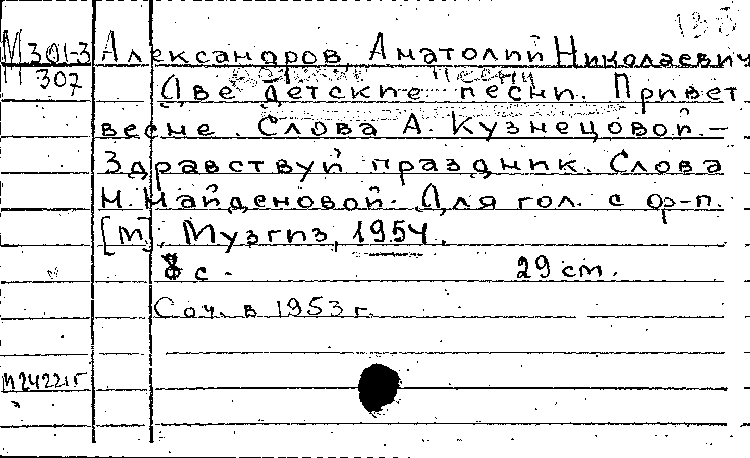 М301-3 Александров, Анатолий Николаевич
307 Две детские песни. Привет
весне. Слова А. Кузнецовой. –
Здравствуй праздник. Слова
Н. Найденовой. Для гол. с ф-п.
[М], Музгиз, 1954.
8 с. 29 cm.
Соч. в 1953 г.
М24221г